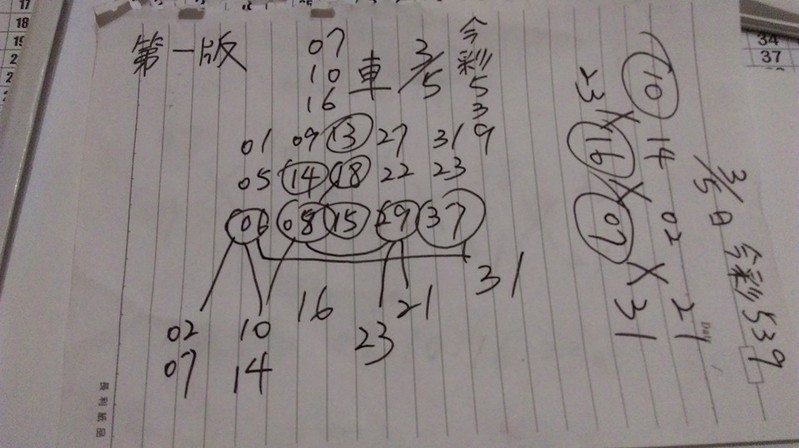 第一版
07
10
16
車
3/5
今彩539
01 09 13 27 31
05 14 18 22 23
06 08 15 29 37
02 10 16 23 21 31
07 14
10 14
23 X 16 X 02
07 X 21
31
3/5日 今彩539
Day
長利紙品
17
18
19
34
37